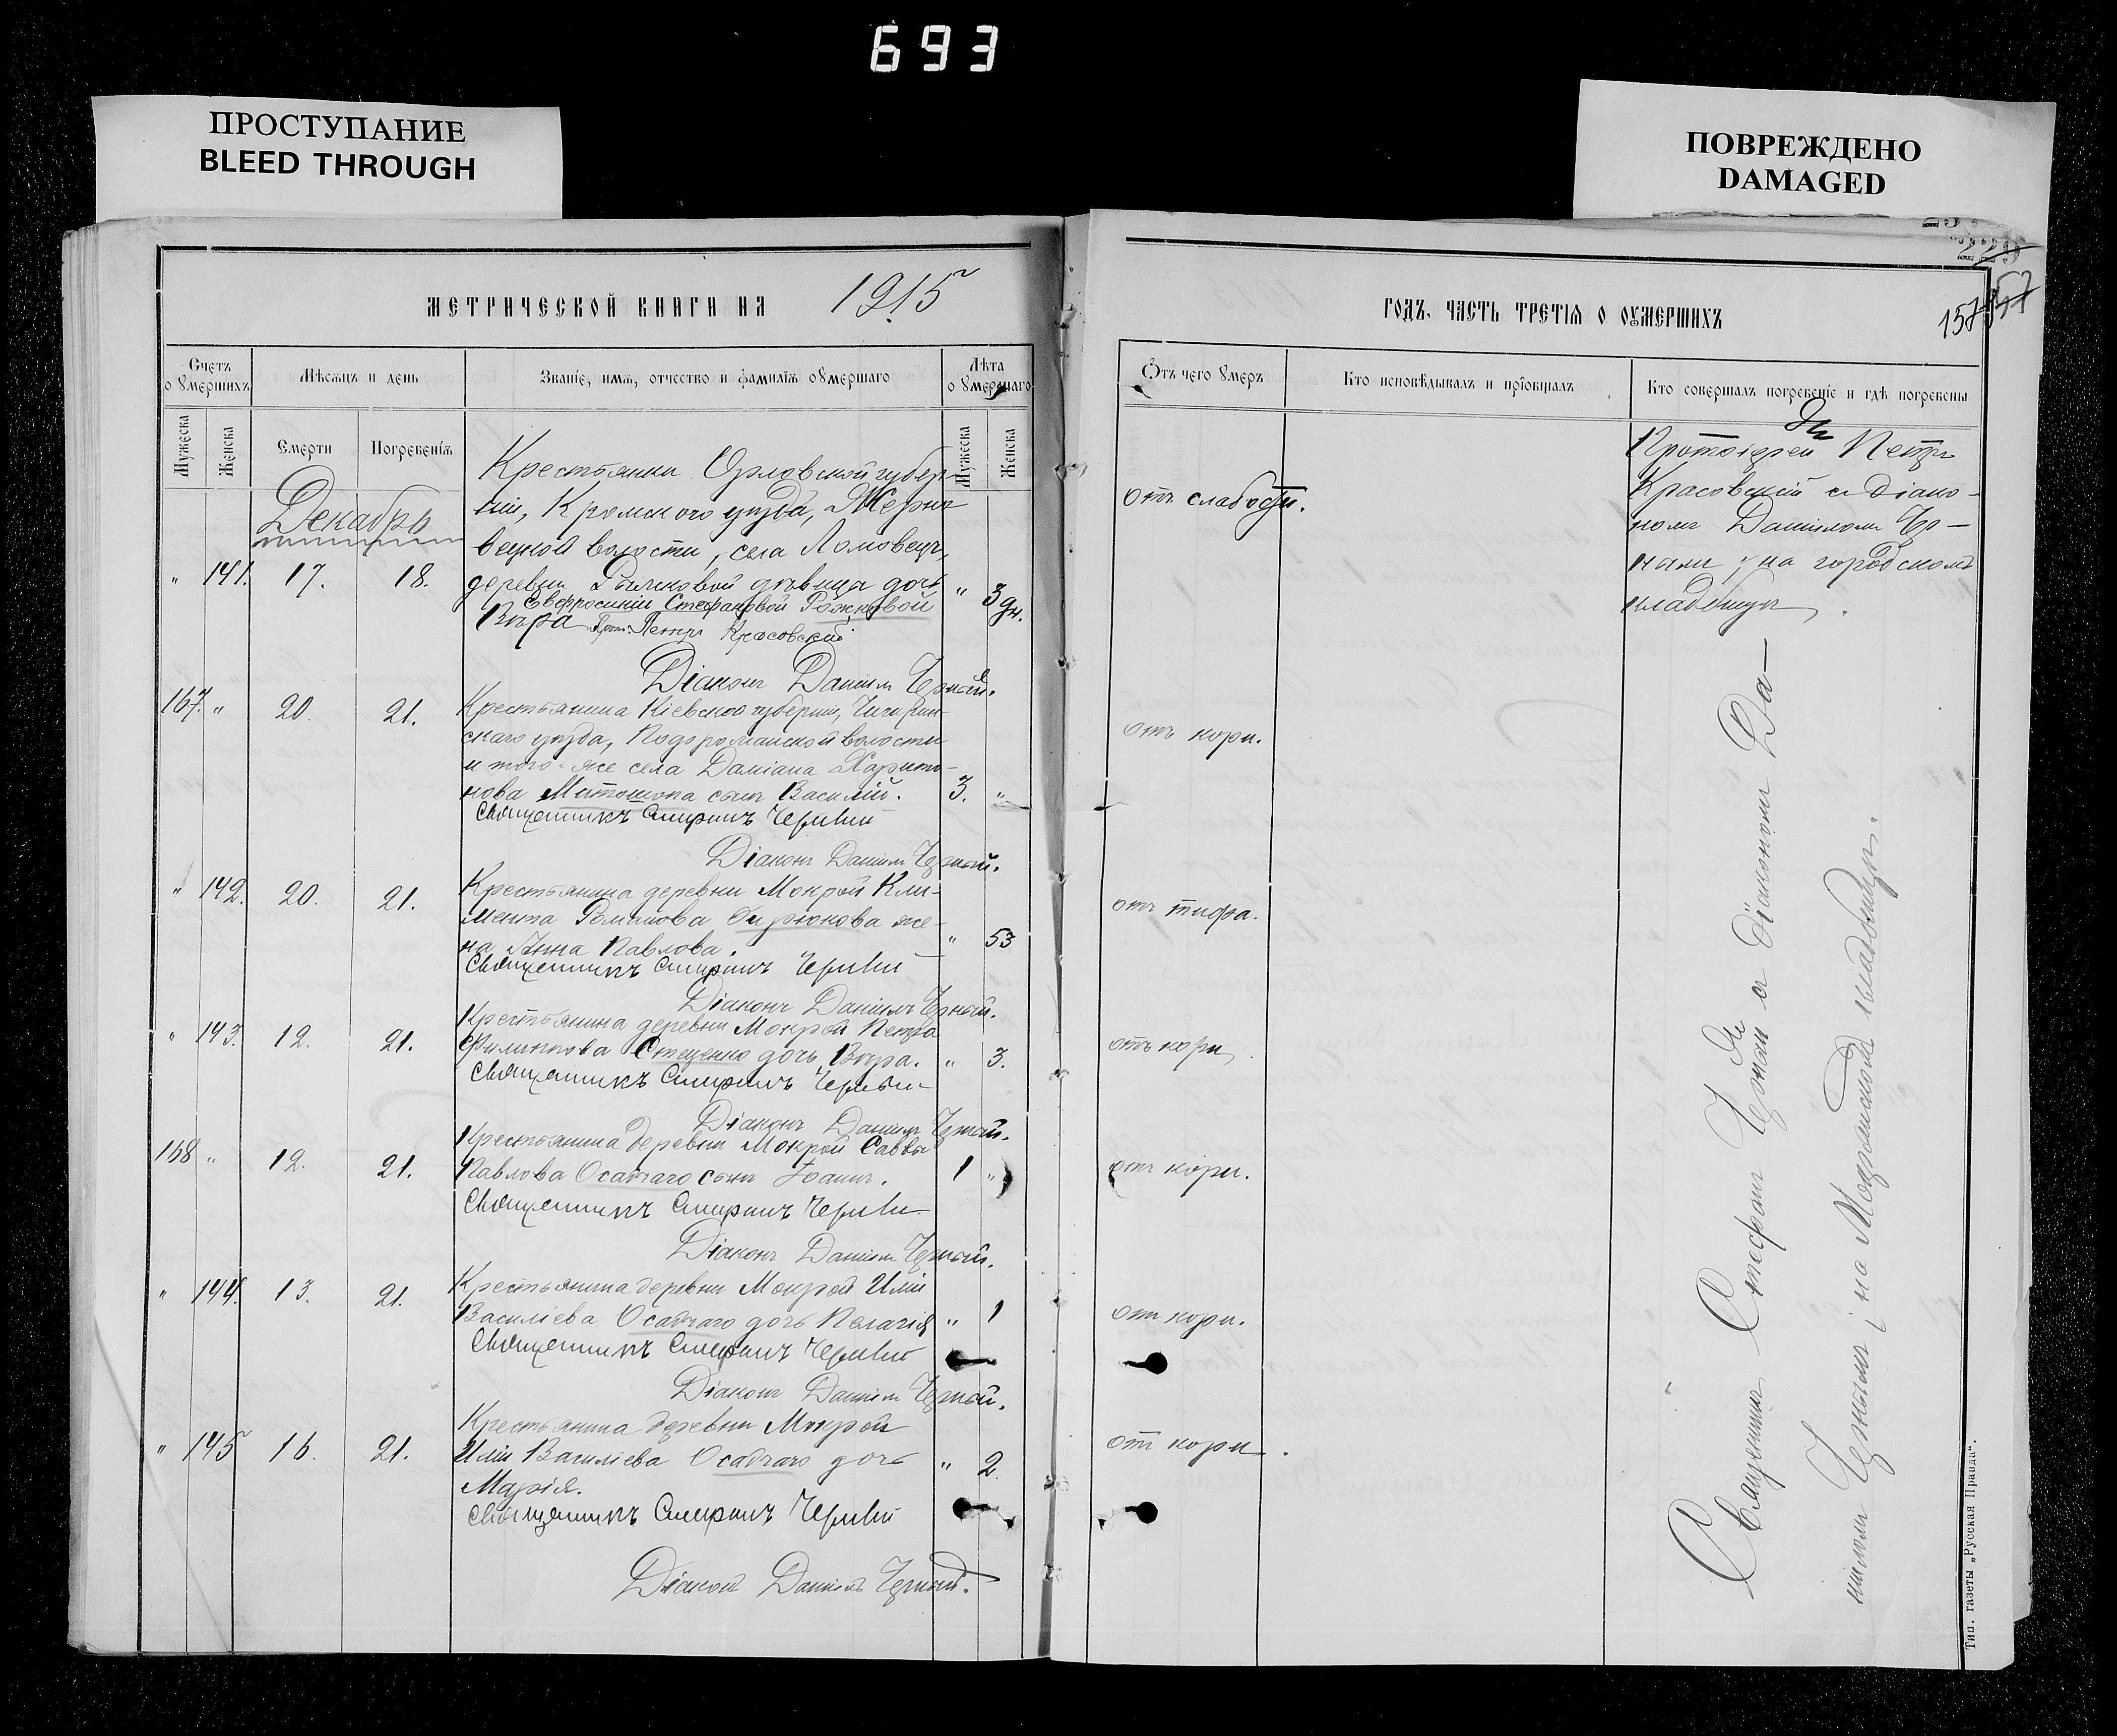 693
ПРОСТУПАНИЕ
BLEED THROUGH
ПОВРЕЖДЕНО
DAMAGED
МЕТРИЧЕСКОЙ КНИГИ НА 1915
Счетъ о умершихъ
Мѣсяцъ и день
Званіе, имя, отчество и фамилія умершаго
Лѣта умершаго
Мужеска
Женска
Смерти
Погребенія
Мужеска
Женска
Декабрь
Крестьянки Орловской губер-
ніи, Кромского уѣзда,
вецкой волости, села Ломовецъ,
" 141. 17. 18. деревни дѣвицы дочь " 3 дн.
Евфросиніи Стефановой Рожковой
Вѣра Прот. Петръ Красовскій
Діаконъ Даніилъ Черный.
167. " 20. 21. Крестьянина Кіевской губерніи, Чигирин-
скаго уѣзда, Подорожанской волости
и того-же села Даміана Харито-
нова сынъ Василій. 3. "
Священникъ
Діаконъ Даніилъ Черный.
" 142. 20. 21. Крестьянина деревни Мокрой Кли-
мента Романова Бирюкова же-
на Анна Павлова. " 53
Священникъ
Діаконъ Даніилъ Черный.
" 143. 12. 21. Крестьянина деревни Мокрой Петра
Филиппова Стеценко дочь Вѣра. " 3.
Священникъ
Діаконъ Даніилъ Черный.
168 " 12. 21. Крестьянина деревни Мокрой Саввы
Павлова Осадчаго сынъ Іоаннъ. 1 "
Священникъ
Діаконъ Даніилъ Черный.
" 144. 13. 21. Крестьянина деревни Мокрой Иліи
Василіева Осадчаго дочь Пелагія " 1
Священникъ
Діаконъ Даніилъ Черный.
" 145 16. 21. Крестьянина деревни Мокрой
Иліи Василіева Осадчаго дочь " 2.
Марія.
Священникъ
Діаконъ Даніилъ Черный.
ГОДЪ, ЧАСТЬ ТРЕТІЯ О УМЕРШИХЪ
157
Отъ чего умеръ
Кто исповѣдывалъ и пріобщалъ
Кто совершалъ погребеніе и гдѣ погребены
отъ слабости.
Протоіерей Петръ
Красовскій съ діако-
номъ Даніиломъ Чер-
нымъ; на городскомъ
кладбищѣ.
отъ кори.
отъ тифа.
отъ кори.
отъ кори.
отъ кори.
отъ кори.
Священникъ Стефанъ съ діакономъ Да-
ніиломъ Чернымъ; на Мокрянскомъ кладбищѣ.
Тип. газеты „Русская Правда“.